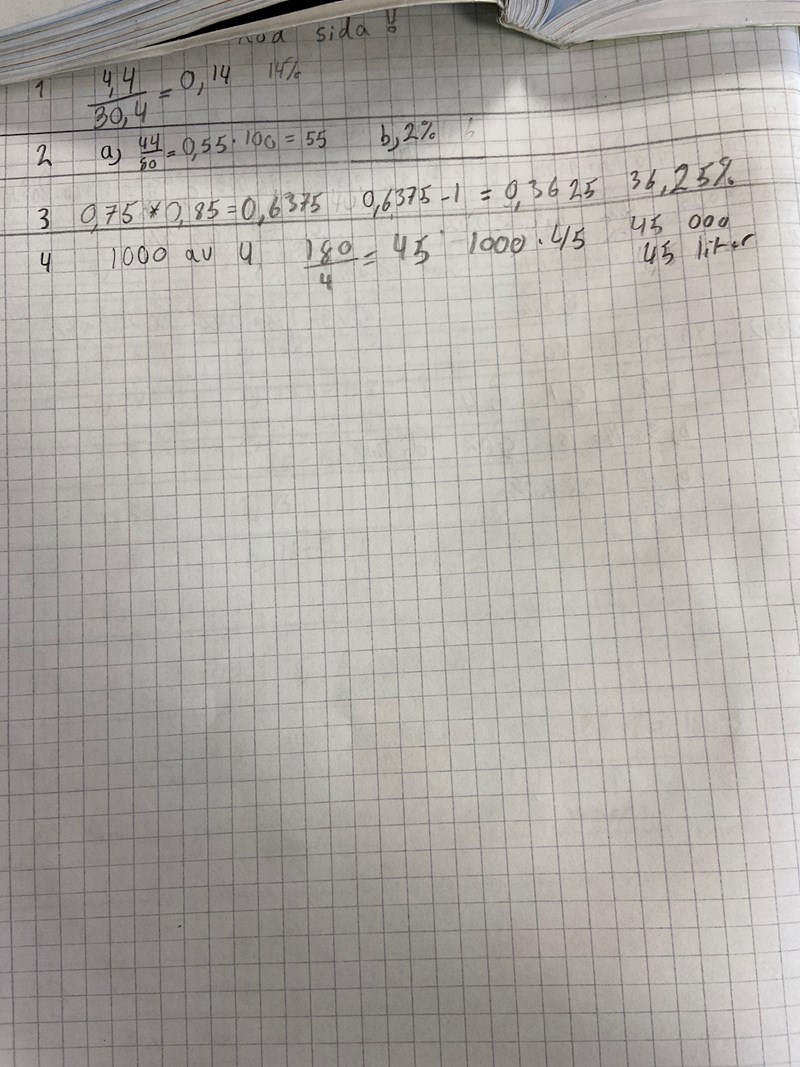 sida !
1 4,4/30,4 = 0,14 14%
2 a) 44/80 = 0,55 · 100 = 55 b, 2%
3 0,75 * 0,85 = 0,6375 0,6375 - 1 = 0,3625 36,25%
4 1000 av 4 180/4 = 45 1000 · 45 45 000
45 liter